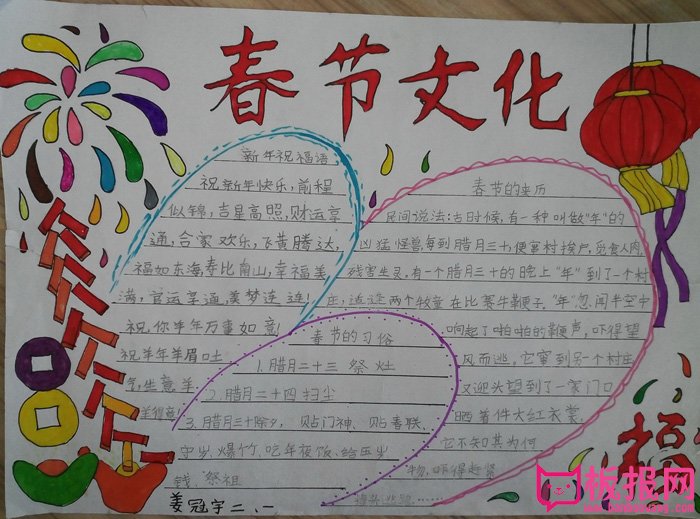 春节文化
新年祝福语
祝新年快乐，前程
似锦，吉星高照，财运享
通，合家欢乐，飞黄腾达，
福如东海寿比南山，幸福美
满，官运享通，美梦连连！
祝你羊年万事如意！
祝羊年羊眉吐
气，生意羊
羊得意！
春节的来历
民间说法：古时候，有一种叫做"年"的
凶猛怪兽，每到腊月三十，便窜村挨户，觅食人肉，
残害生灵，有一个腊月三十的晚上"年"到了一个村
庄，适逢两个牧童在比赛牛鞭子，"年"忽闻半空中
响起了啪啪的鞭声，吓得望
风而逃，它窜到另一个村庄
又迎头望到了一家门口
晒着件大红衣裳，
它不知其为何
物，吓得赶紧
掉头逃跑……
春节的习俗
1.腊月二十三 祭灶
2.腊月二十四扫尘
3.腊月三十除夕，贴门神、贴春联、
守岁、爆竹、吃年夜饭、给压岁
钱、祭祖
姜冠宇二、一
福
板报网